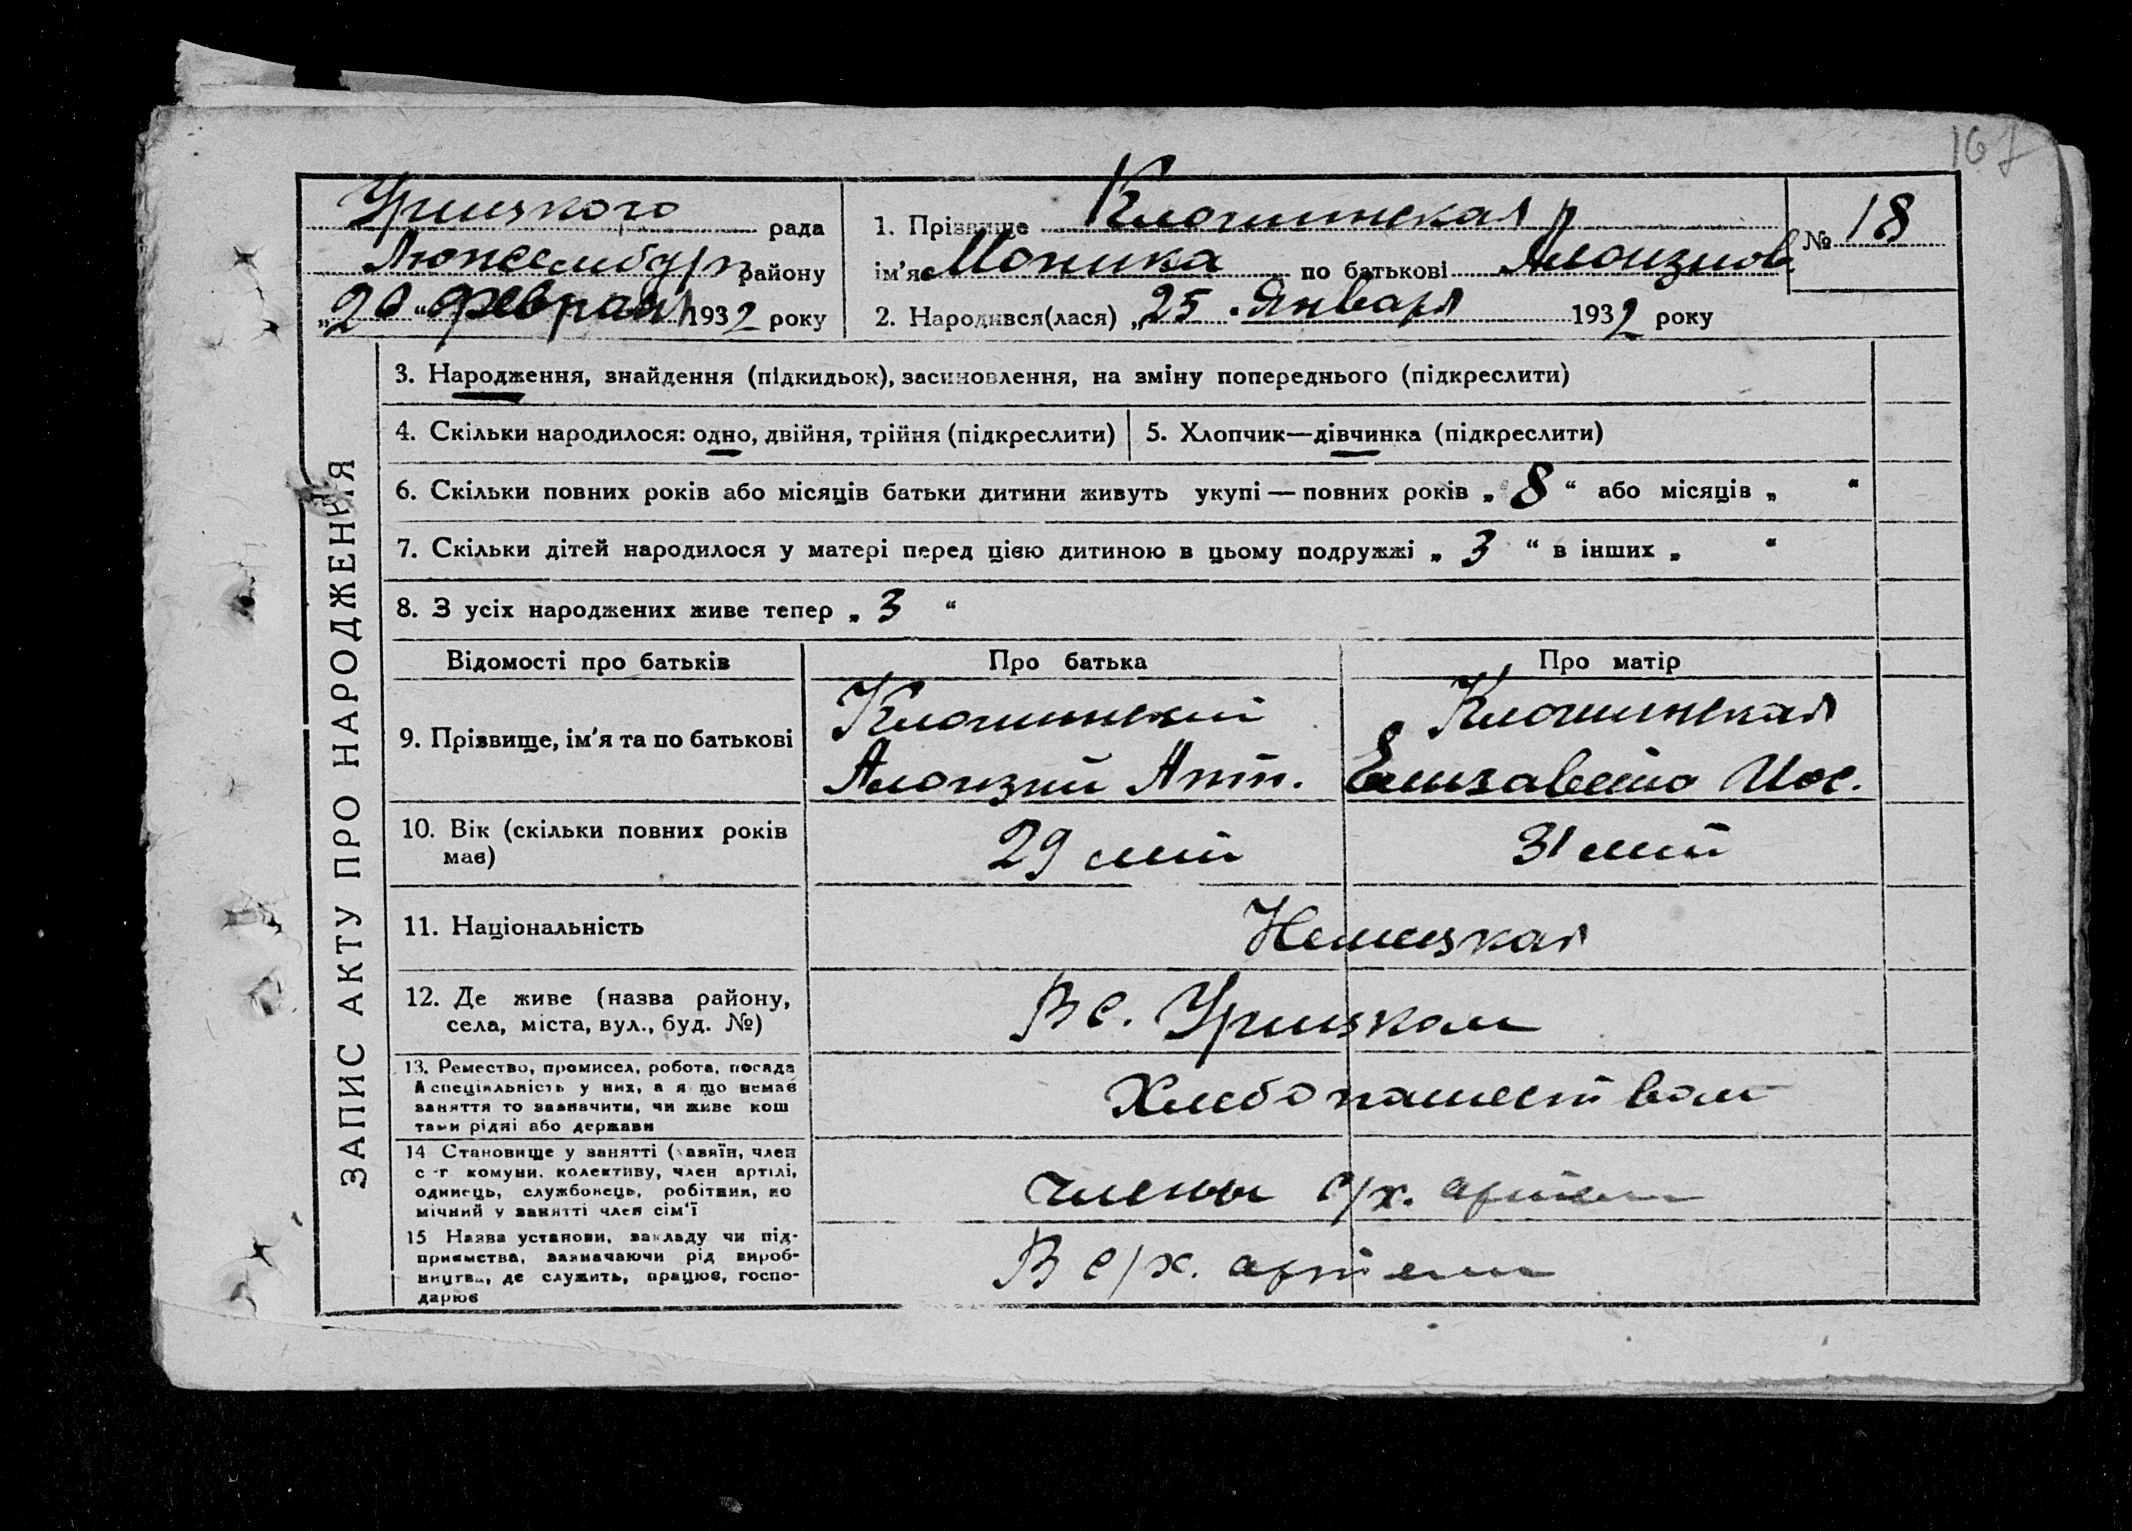 167
Урицкого рада
Люксембург району
„20“ февраля 1932 року
1. Прізвище Клошинская
ім'я Моника по батькові Алоизиов
2. Народився(лася) „25 Января 1932 року
№ 18
ЗАПИС АКТУ ПРО НАРОДЖЕННЯ
3. Народження, знайдення (підкидьок), засиновлення, на зміну попереднього (підкреслити)
4. Скільки народилося: одно, двійня, трійня (підкреслити)
5. Хлопчик—дівчинка (підкреслити)
6. Скільки повних років або місяців батьки дитини живуть укупі — повних років „8“ або місяців „ “
7. Скільки дітей народилося у матері перед цією дитиною в цьому подружжі „3“ в інших „ “
8. З усіх народжених живе тепер „3“
Відомості про батьків
Про батька
Про матір
9. Прізвище, ім'я та по батькові
Клошинский
Алоизий Ант.
Клошинская
Елизавета Иос.
10. Вік (скільки повних років
має)
29 лет
31 лет
11. Національність
Немецкая
12. Де живе (назва району,
села, міста, вул., буд. №)
В с. Урицком
13. Ремество, промисел, робота, посада
А спеціяльність у них, а я що немає
заняття то зазначити, чи живе кош
тами рідні або держави
Хлебопашеством
14 Становище у занятті (хазяїн, член
с-г комуни. колективу, член артілі,
одинець, службовець, робітник, по
мічний у занятті член сім'ї
члены с/х. артели
15 Назва установи, закладу чи під-
приємства, зазначаючи рід вироб-
ництва, де служить, працює, госпо-
дарює
В с/х. артели